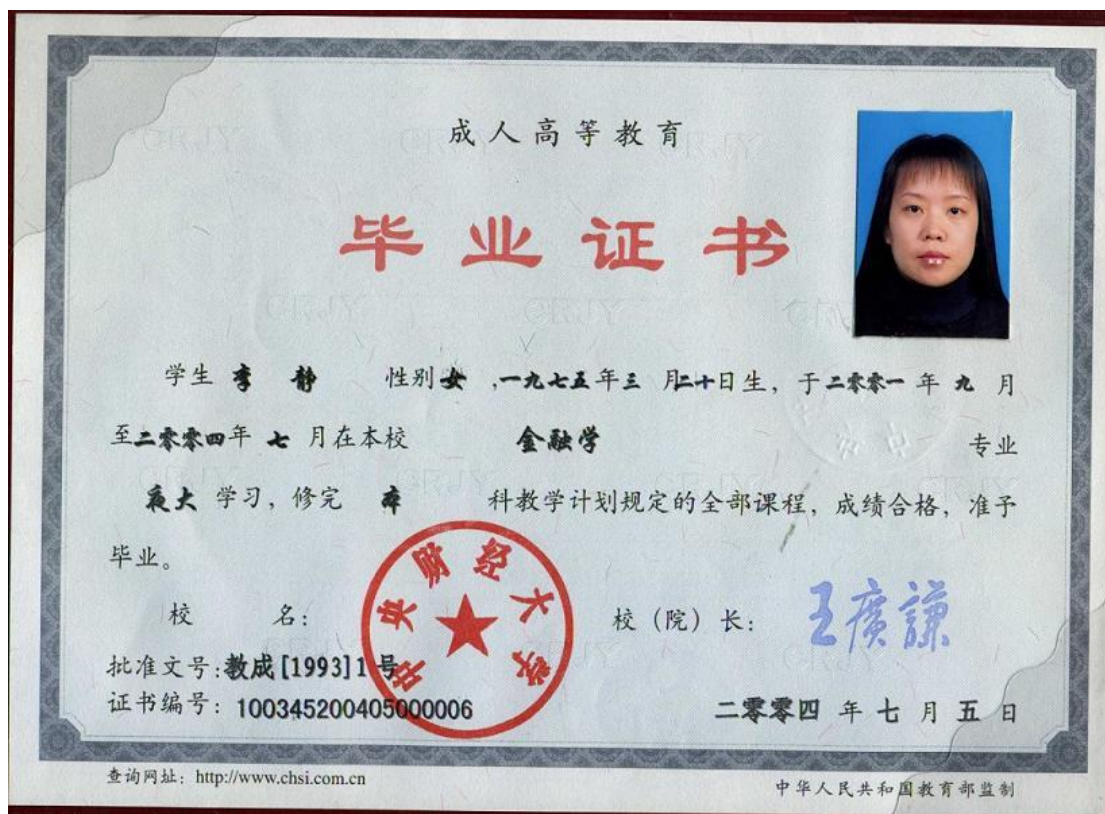 成人高等教育
毕业证书
学生 李 静 性别 女 ,一九七五年三 月二十日生，于二零零一 年 九 月
至二零零四年 七 月在本校 金融学 专业
夜大 学习，修完 本 科教学计划规定的全部课程，成绩合格，准予
毕业。
校 名： 中央财经大学 校（院）长： 王廣謙
批准文号:教成[1993]1号
证书编号：100345200405000006 二零零四 年 七 月 五 日
查询网址：http://www.chsi.com.cn 中华人民共和国教育部监制